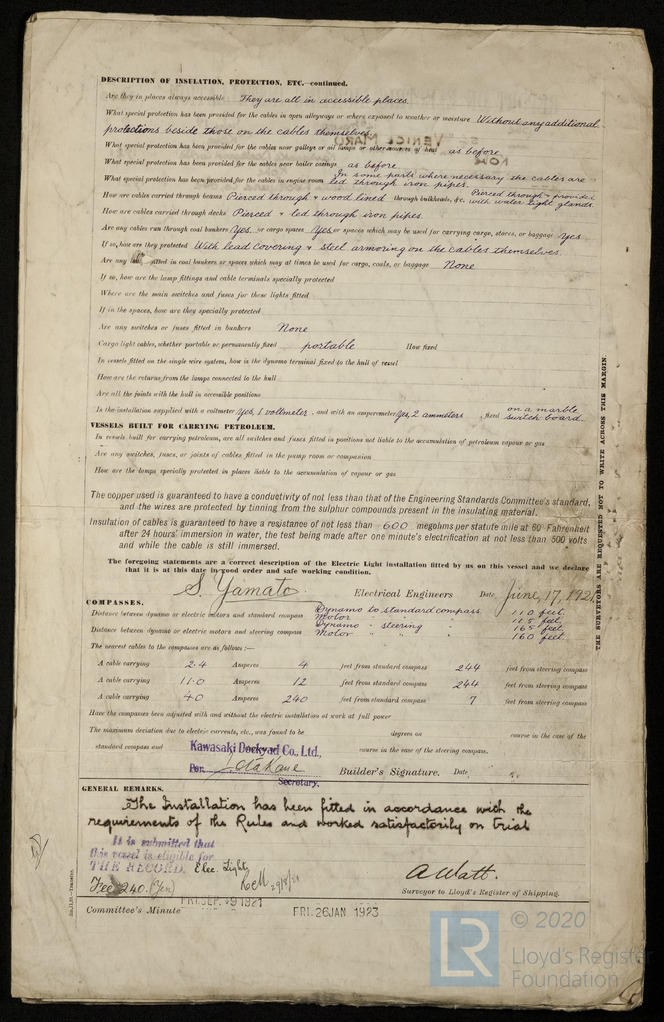 DESCRIPTION OF INSULATION, PROTECTION, ETC.—continued.
Are they in places always accessible They are all in accessible places.
What special protection has been provided for the cables in open alleyways or where exposed to weather or moisture Without any additional
protections beside those on the cables themselves.
VENICE MARU
NOW
What special protection has been provided for the cables near galleys or oil lamps or other sources of heat as before
What special protection has been provided for the cables near boiler casings as before
What special protection has been provided for the cables in engine room In some parts where necessary the cables are
led through iron pipes.
How are cables carried through beams Pierced through & wood lined through bulkheads, &c. Pierced through & provided
with water tight glands.
How are cables carried through decks Pierced & led through iron pipes
Are any cables run through coal bunkers Yes or cargo spaces Yes or spaces which may be used for carrying cargo, stores, or baggage Yes
If so, how are they protected With lead covering & steel armoring on the cables themselves.
Are any fitted in coal bunkers or spaces which may at times be used for cargo, coals, or baggage None
If so, how are the lamp fittings and cable terminals specially protected
Where are the main switches and fuses for these lights fitted
If in the spaces, how are they specially protected
Are any switches or fuses fitted in bunkers None
Cargo light cables, whether portable or permanently fixed portable How fixed
In vessels fitted on the single wire system, how is the dynamo terminal fixed to the hull of vessel
How are the returns from the lamps connected to the hull
Are all the joints with the hull in accessible positions
Is the installation supplied with a voltmeter Yes, 1 voltmeter, and with an amperemeter Yes, 2 ammeters, fixed on a marble
switch board.
VESSELS BUILT FOR CARRYING PETROLEUM.
In vessels built for carrying petroleum, are all switches and fuses fitted in positions not liable to the accumulation of petroleum vapour or gas
Are any switches, fuses, or joints of cables fitted in the pump room or companion
How are the lamps specially protected in places liable to the accumulation of vapour or gas
The copper used is guaranteed to have a conductivity of not less than that of the Engineering Standards Committee's standard,
and the wires are protected by tinning from the sulphur compounds present in the insulating material.
Insulation of cables is guaranteed to have a resistance of not less than 600 megohms per statute mile at 60° Fahrenheit
after 24 hours' immersion in water, the test being made after one minute's electrification at not less than 500 volts
and while the cable is still immersed.
The foregoing statements are a correct description of the Electric Light installation fitted by us on this vessel and we declare
that it is at this date in good order and safe working condition.
S. Yamato Electrical Engineers Date June, 17, 192
COMPASSES.
Distance between dynamo or electric motors and standard compass Dynamo to standard compass 110 feet.
Motor " " 115 feet,
Distance between dynamo or electric motors and steering compass Dynamo " steering " 165 feet
Motor " " " 160 feet
The nearest cables to the compasses are as follows:—
A cable carrying 2.4 Amperes 4 feet from standard compass 244 feet from steering compass
A cable carrying 11.0 Amperes 12 feet from standard compass 244 feet from steering compass
A cable carrying 40 Amperes 240 feet from standard compass 7 feet from steering compass
Have the compasses been adjusted with and without the electric installation at work at full power
The maximum deviation due to electric currents, etc., was found to be degrees on course in the case of the
standard compass and course in the case of the steering compass.
Kawasaki Dockyard Co., Ltd.,
Per. Builder's Signature. Date
Secretary.
GENERAL REMARKS.
The Installation has been fitted in accordance with the
requirements of the Rules and worked satisfactorily on trial
It is submitted that
this vessel is eligible for
THE RECORD. Elec. Light.
Fee 240. (Yen)
A Watt.
Surveyor to Lloyd's Register of Shipping.
FRI. SEP. 9 1921
Committee's Minute FRI. 26 JAN 1923
THE SURVEYORS ARE REQUESTED NOT TO WRITE ACROSS THIS MARGIN.
LR
© 2020
Lloyd's Register
Foundation